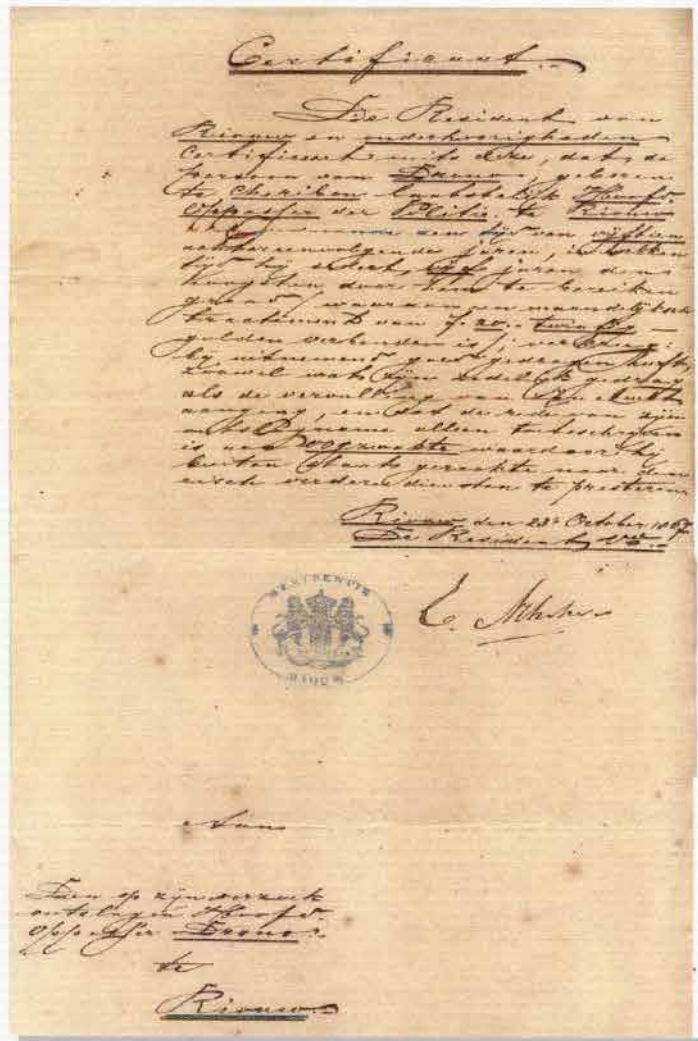 Certificaat.
De Resident van
Riouw en onderhoorigheden
Certificeert mits deze, dat de
persoon van Drono, geboren
te Cheribon laatstelijk Hoofd
Oppasser der Politie te Riouw
den tijd van vijftien
achtereenvolgende jaren, in welken
tijd hij sedert, vijf jaren den
hoogsten door hem te bereiken
graad / waaraan een maandelijksch
tractement van ƒ 20.- twintig
gulden verbonden is /
bij uitnemend goed gedragen heeft,
zoowel wat zijn zedelijk gedrag
als de vervulling van zijn
aanging, en dat de rede van zijn
is
buiten staat geraakte naar den
eisch verdere diensten te presteren
Riouw den 23e October 1867
De Resident
E.
RESIDENTIE
RIOUW
Aan
Den op zijn verzoek
ontslagen Hoofd
Oppasser Drono.
te
Riouw